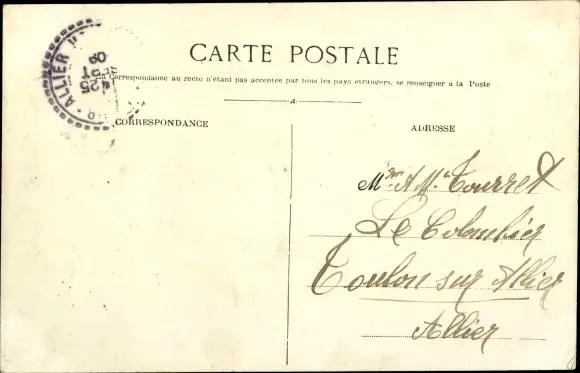 CARTE POSTALE
La Correspondance au recto n'étant pas acceptée par tous les pays étrangers, se renseigner à la Poste
CORRESPONDANCE
ADRESSE
ALLIER
25
SEPT
09
Tourret
Le Colombier
Toulon sur Allier
Allier